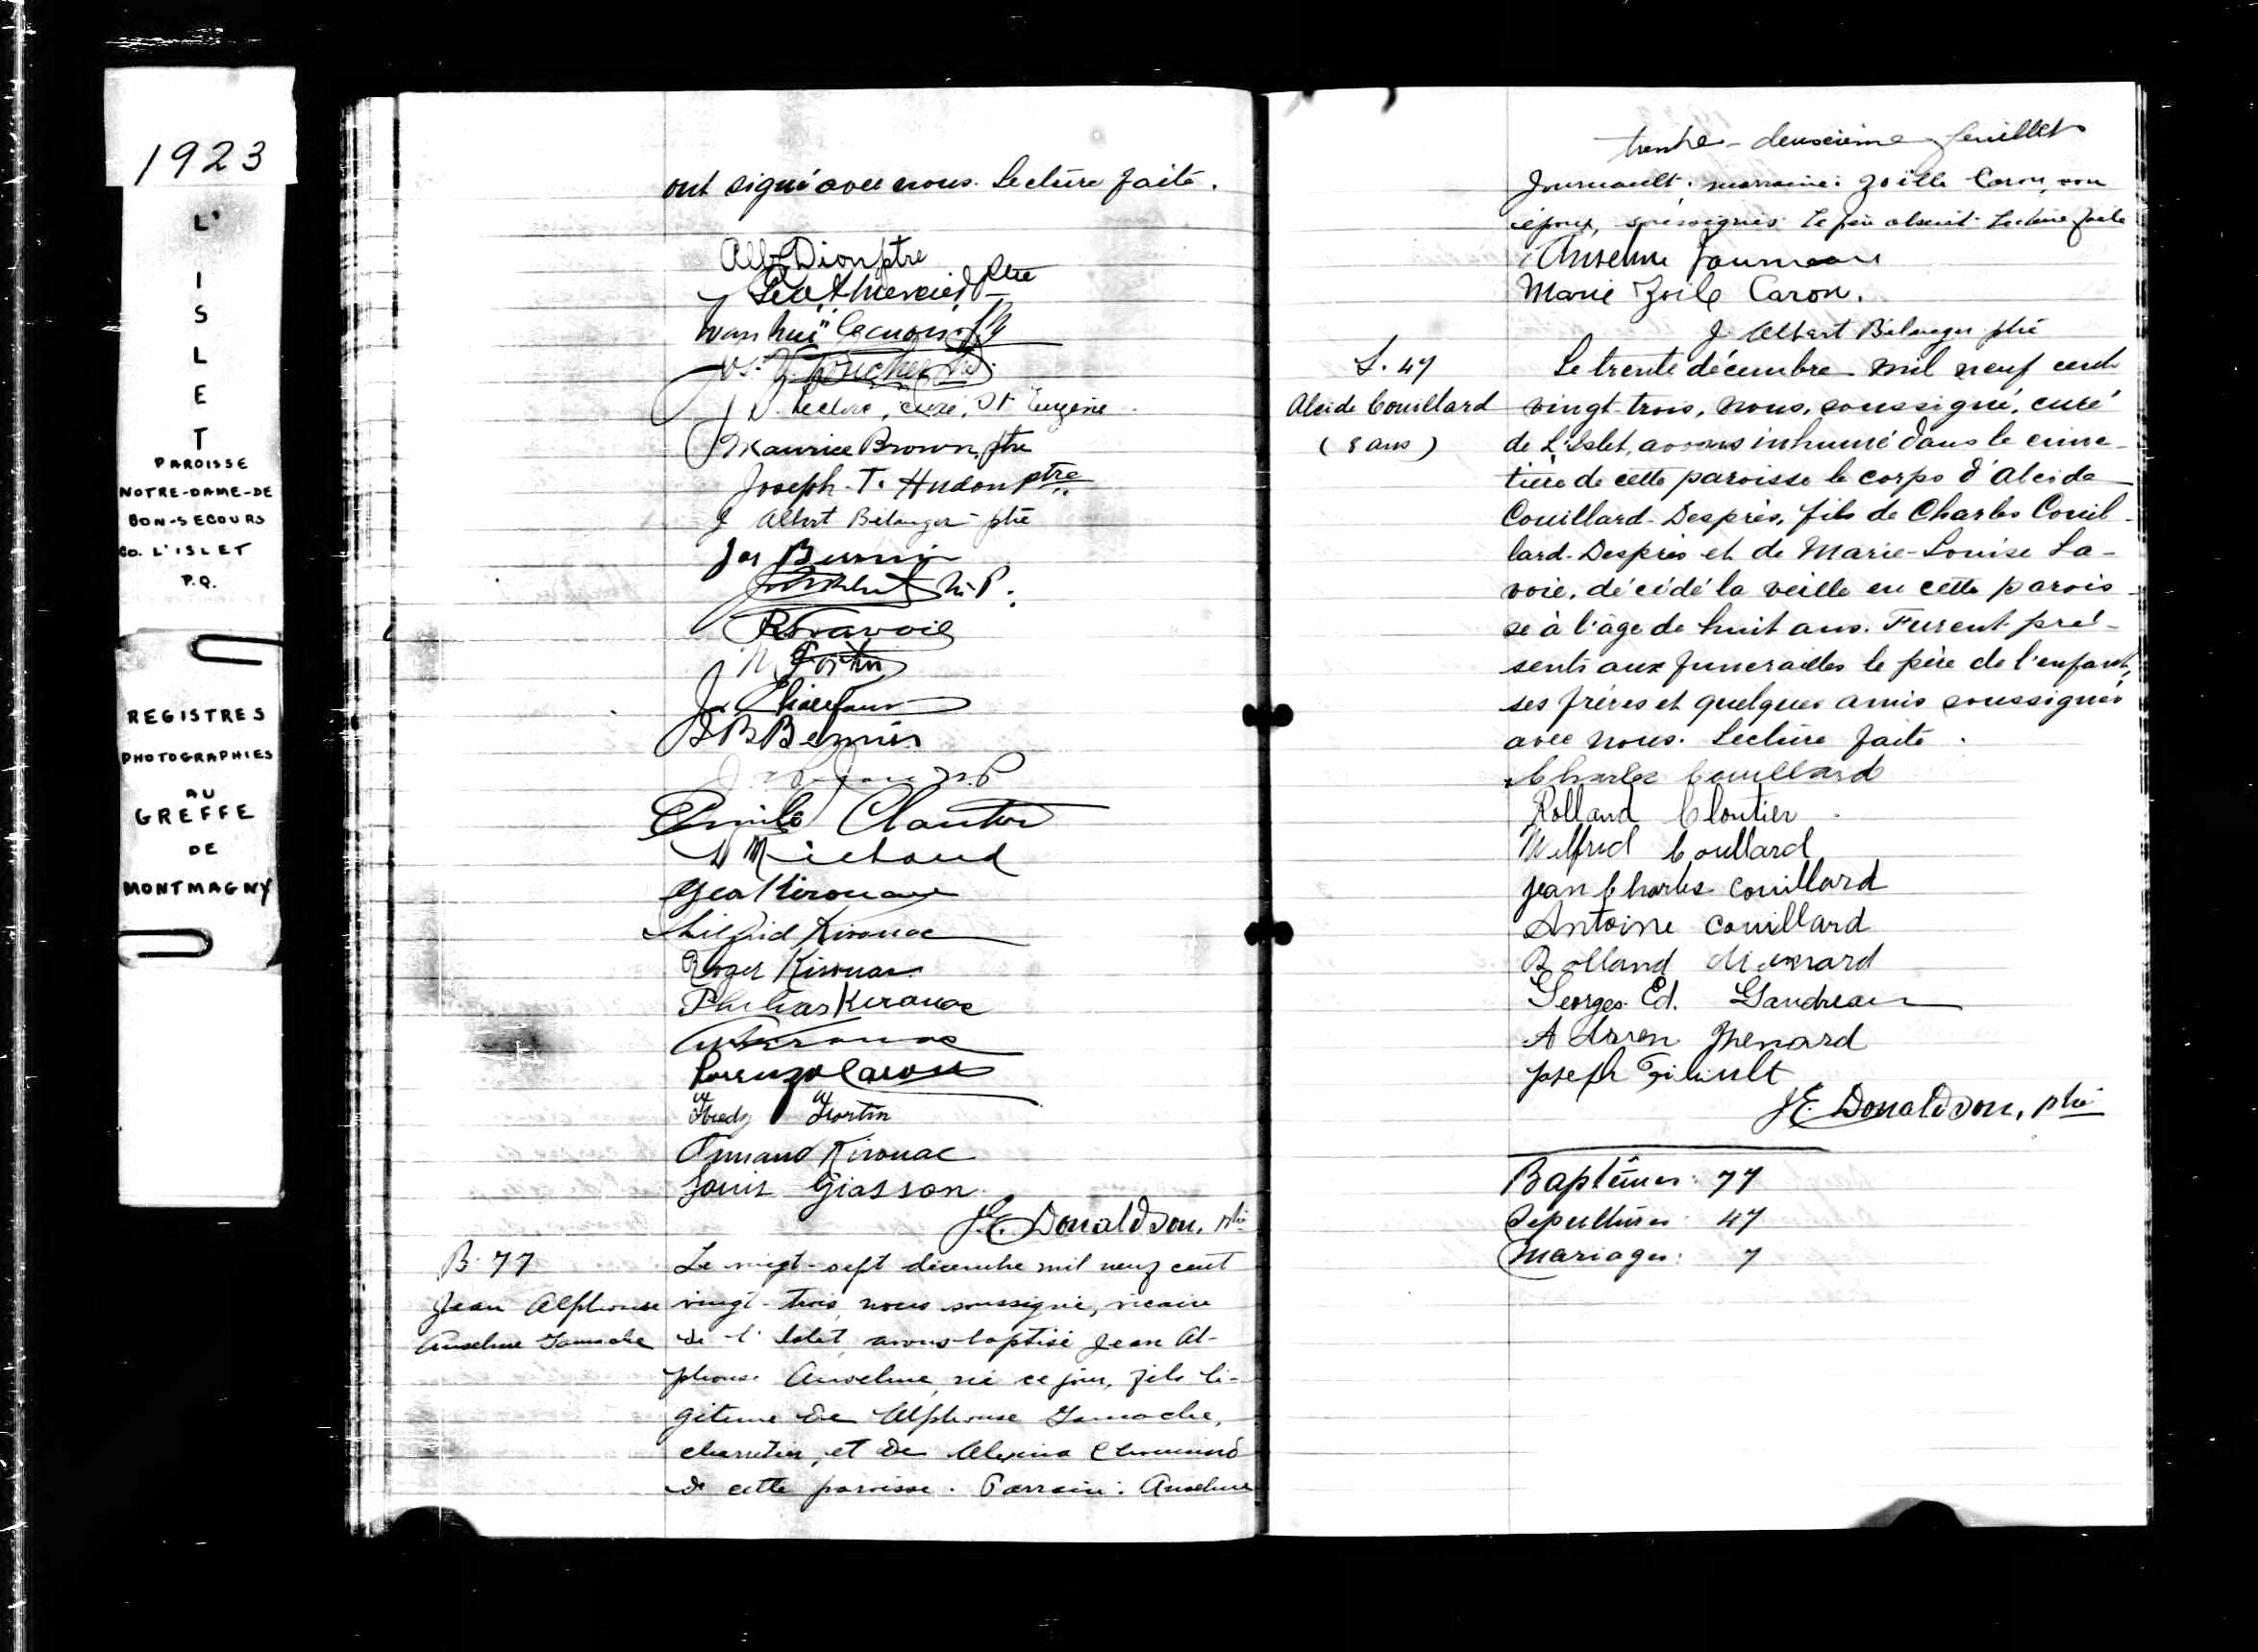 1923
L'
I
S
L
E
T
PAROISSE
NOTRE-DAME-DE
BON-SECOURS
CO. L'ISLET
P.Q.
REGISTRES
PHOTOGRAPHIES
AU
GREFFE
DE
MONTMAGNY
ont signé avec nous. Lecture faite.
Alb Dion ptre
ptre
J. Leclerc, curé, St Eugène
Maurice Brown ptre
Joseph-T. Hudon ptre
J Albert Bélanger ptre
Jos Bernier
N.P.
Fortin
B Bernier
N.P
Emile Cloutier
Michaud
Geo Kirouac
Wilfrid Kirouac
Roger Kirouac
Philias Kirouac
Kirouac
Lorenzo Caron
Fortin
Armand Kirouac
Louis Giasson
J.E. Donaldson, ptre
B. 77
Jean Alphonse
Anselme Gamache
Le vingt-sept décembre mil neuf cent
vingt-trois, nous soussigné, vicaire
de l'Islet, avons baptisé Jean Al-
phonse Anselme, né ce jour, fils lé-
gitime de Alphonse Gamache,
charretier, et de Alexina
de cette paroisse. Parrain: Anselme
trente-deuxième feuillet
Journault; marraine: Zoïlle Caron, son
épouse, soussignés. Le père absent. Lecture faite
Anselme Journeau
Marie Zoïle Caron.
J. Albert Bélanger ptre
S. 47
Alcide Couillard
(8 ans)
Le trente décembre mil neuf cent
vingt-trois, nous, soussigné, curé
de L'Islet, avons inhumé dans le cime-
tière de cette paroisse le corps d'Alcide
Couillard-Desprès, fils de Charles Couil-
lard-Desprès et de Marie-Louise La-
voie, décédé la veille en cette parois-
se à l'âge de huit ans. Furent pré-
sents aux funerailles le père de l'enfant,
ses frères et quelques amis soussignés
avec nous. Lecture faite.
Charles Couillard
Rolland Cloutier
Wilfrid Coullard
Jean Charles Couillard
Antoine Couillard
Rolland
Georges-Ed. Gaudreau
Joseph
J.E. Donaldson, ptre
Baptêmes: 77
Sépultures: 47
Mariages: 7